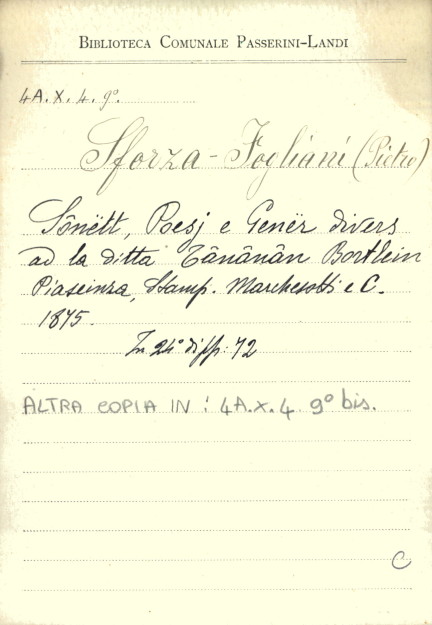 BIBLIOTECA COMUNALE PASSERINI-LANDI
4A.X.4.9°.
Sforza-Fogliani (Pietro)
Sônëtt, Poesj e Genër divers
ad la ditta Tânânân Bortlein
Piaseinza, Stamp. Marchesotti e C.
1875.
In 24° di pp. 72
ALTRA COPIA IN: 4A.X.4 9° bis.
C